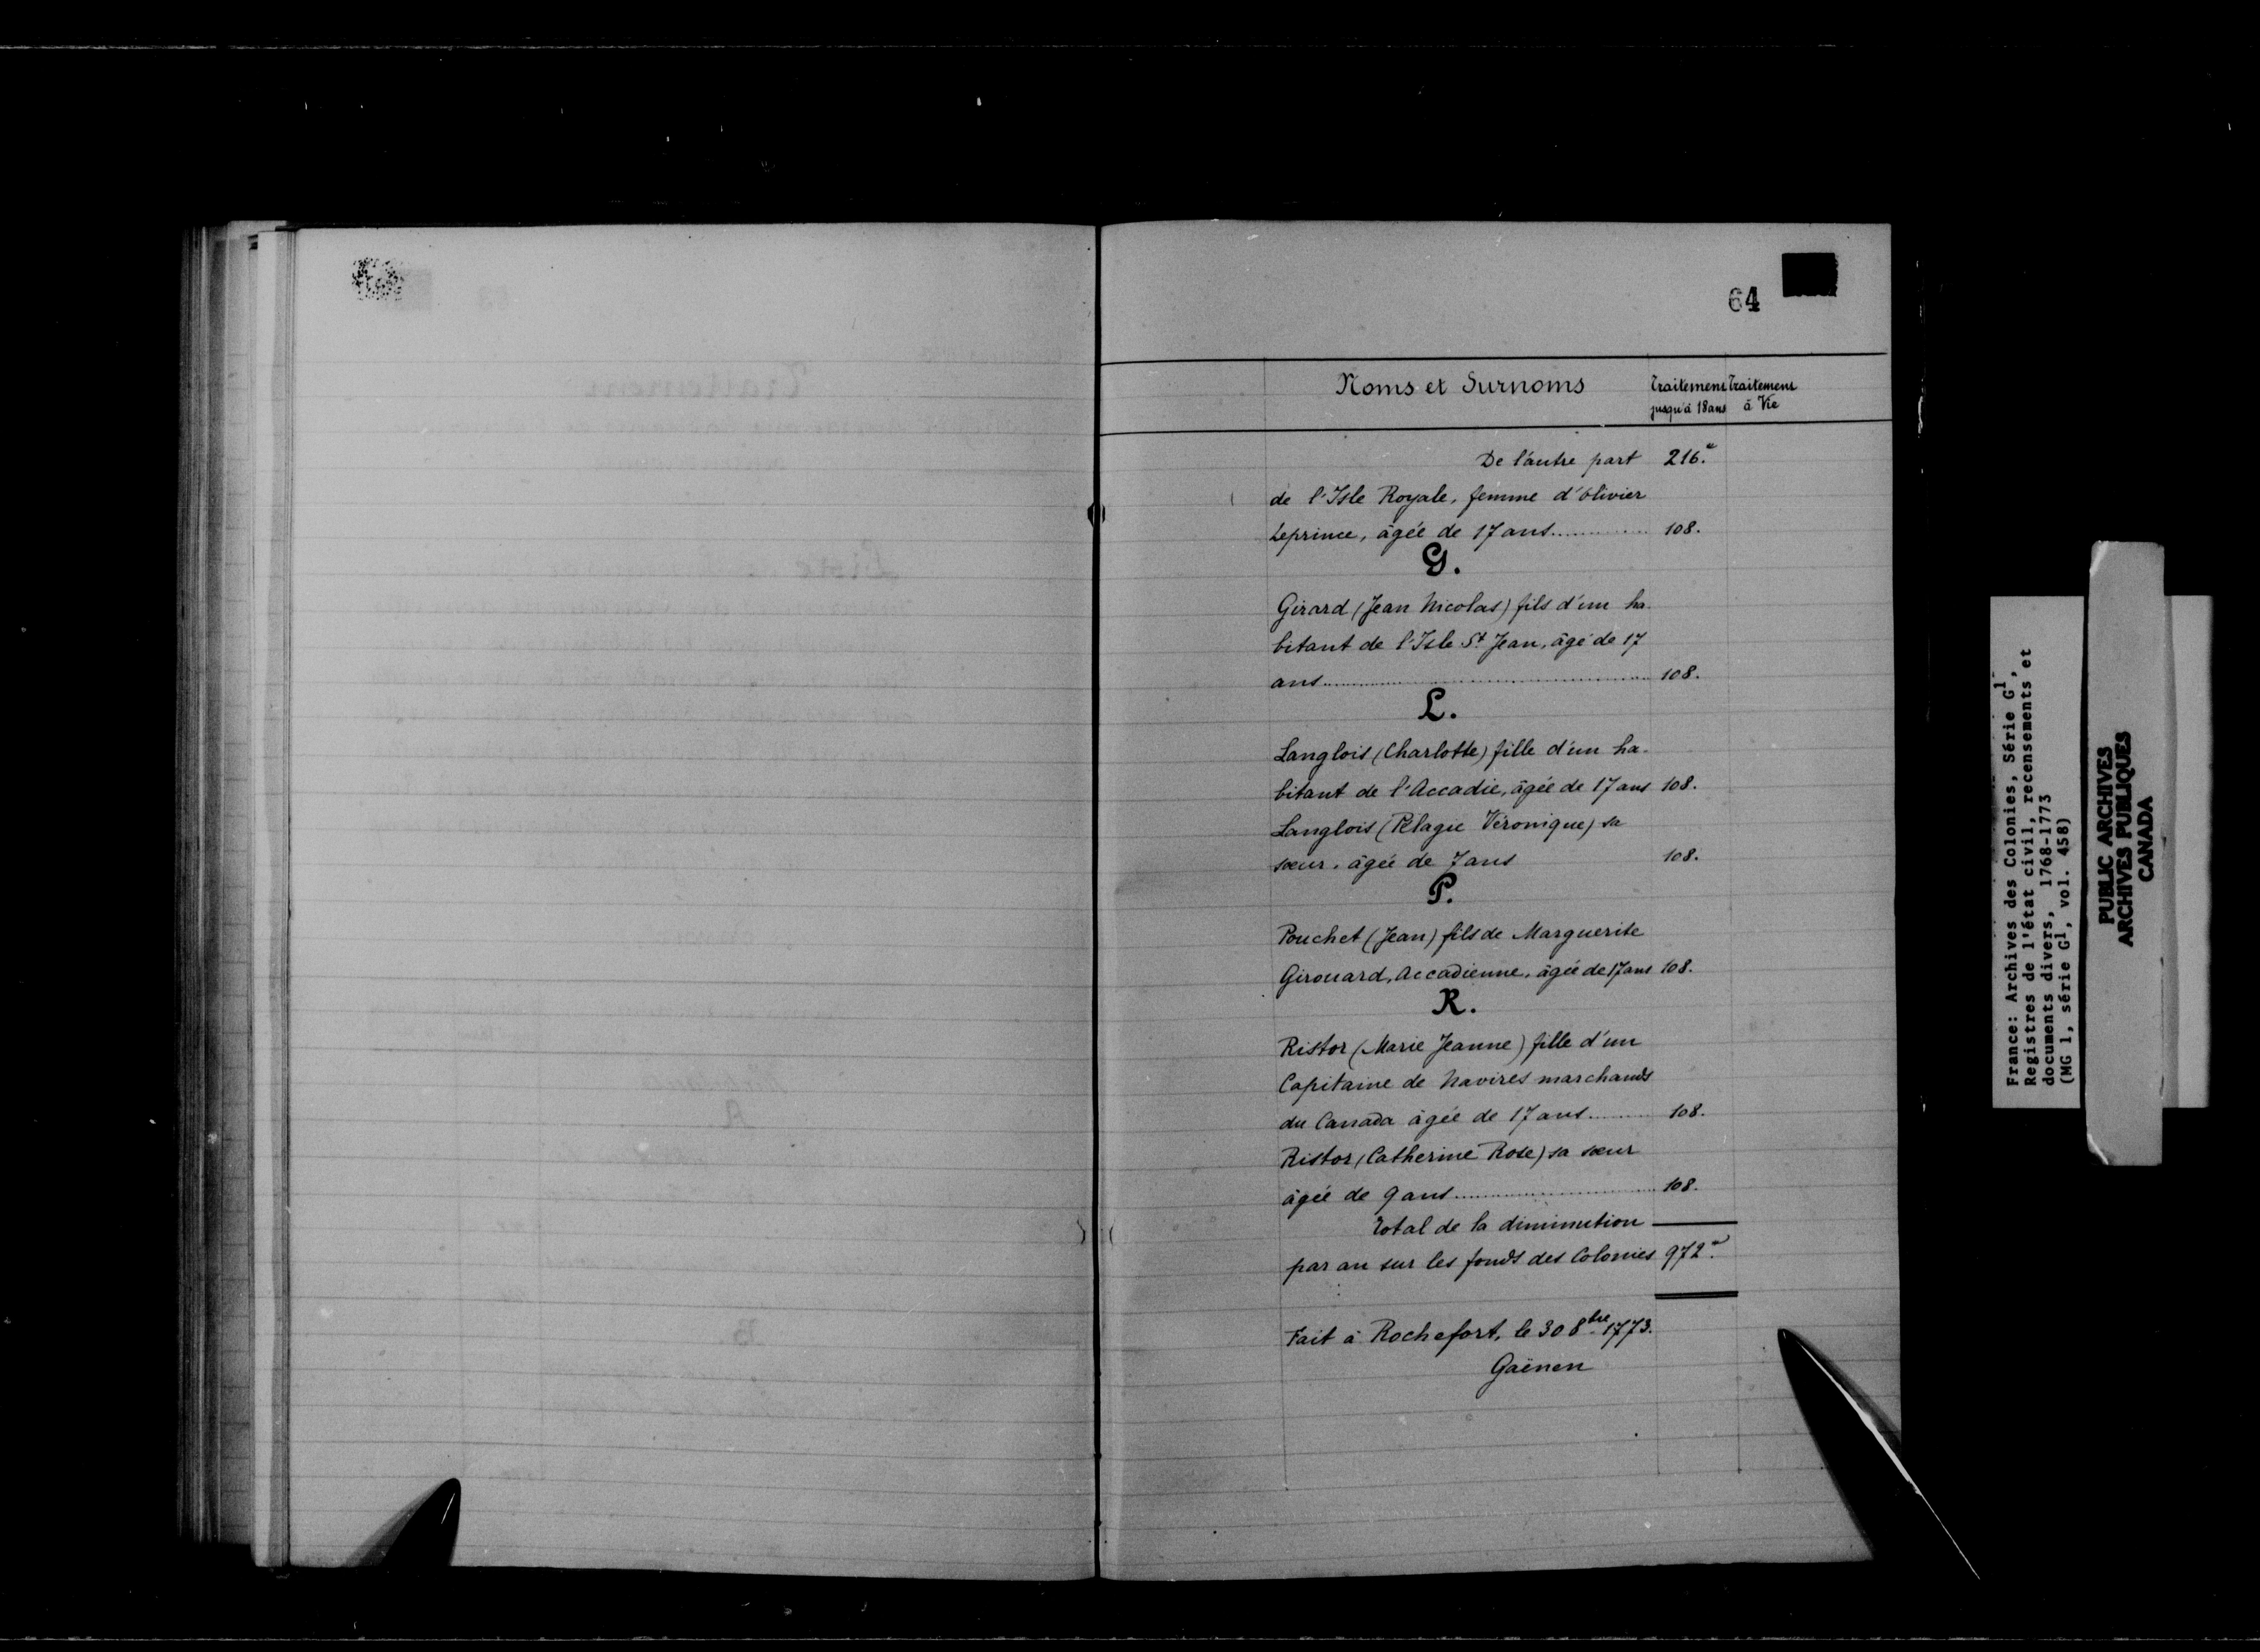 64
Noms et Surnoms
Traitement jusqu'à 18 ans
Traitement à Vie
De l'autre part 216.#
de l'Isle Royale, femme d'Olivier
Leprince, âgée de 17 ans............ 108.
G.
Girard (Jean Nicolas) fils d'un ha-
bitant de l'Isle St Jean, âgé de 17
ans............ 108.
L.
Langlois (Charlotte) fille d'un ha-
bitant de l'Accadie, âgée de 17 ans 108.
Langlois (Pélagie Véronique) sa
sœur, âgée de 7 ans 108.
P.
Pouchet (Jean) fils de Marguerite
Girouard, Accadienne, âgée de 17 ans 108.
R.
Ristor (Marie Jeanne) fille d'un
Capitaine de Navires marchands
du Canada âgée de 17 ans............ 108.
Ristor (Catherine Rose) sa sœur
âgée de 9 ans............ 108.
Total de la diminution
par an sur les fonds des Colonies 972.#
Fait à Rochefort, le 30 8bre 1773.
Gaënen
France: Archives des Colonies, Série G1,
Registres de l'état civil, recensements et
documents divers, 1768-1773
(MG 1, série G1, vol. 458)
PUBLIC ARCHIVES
ARCHIVES PUBLIQUES
CANADA